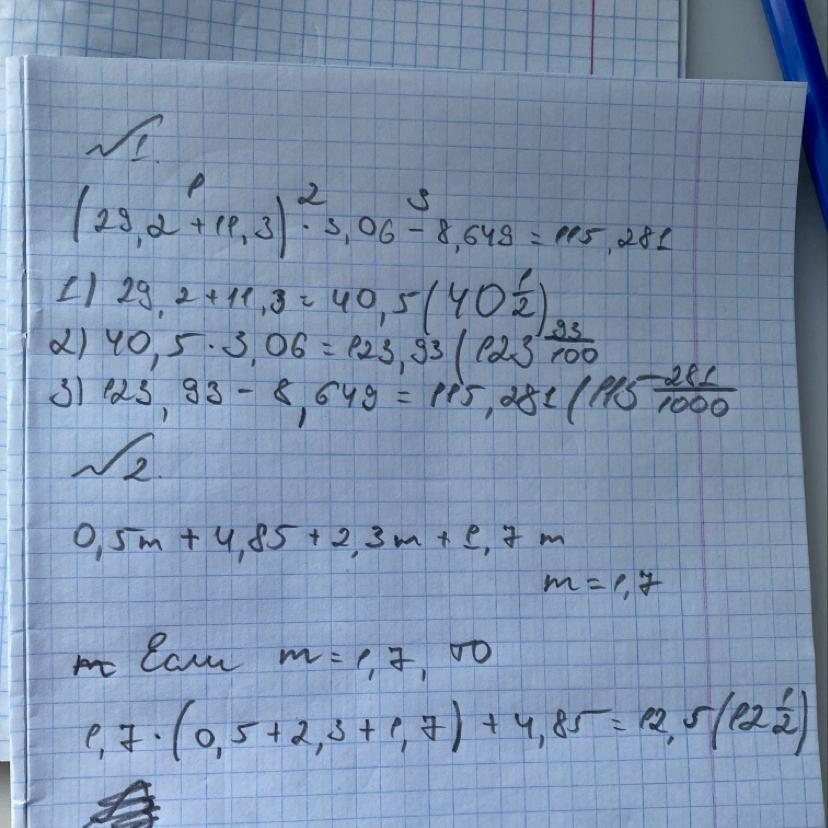 №1.
1 2 3
(29,2+11,3)·3,06-8,649=115,281
1) 29,2+11,3=40,5(40 1/2)
2) 40,5·3,06=123,93(123 93/100
3) 123,93-8,649=115,281(115 281/1000
№2.
0,5m+4,85+2,3m+1,7m
m=1,7
m Если m=1,7, то
1,7·(0,5+2,3+1,7)+4,85=12,5(12 1/2)